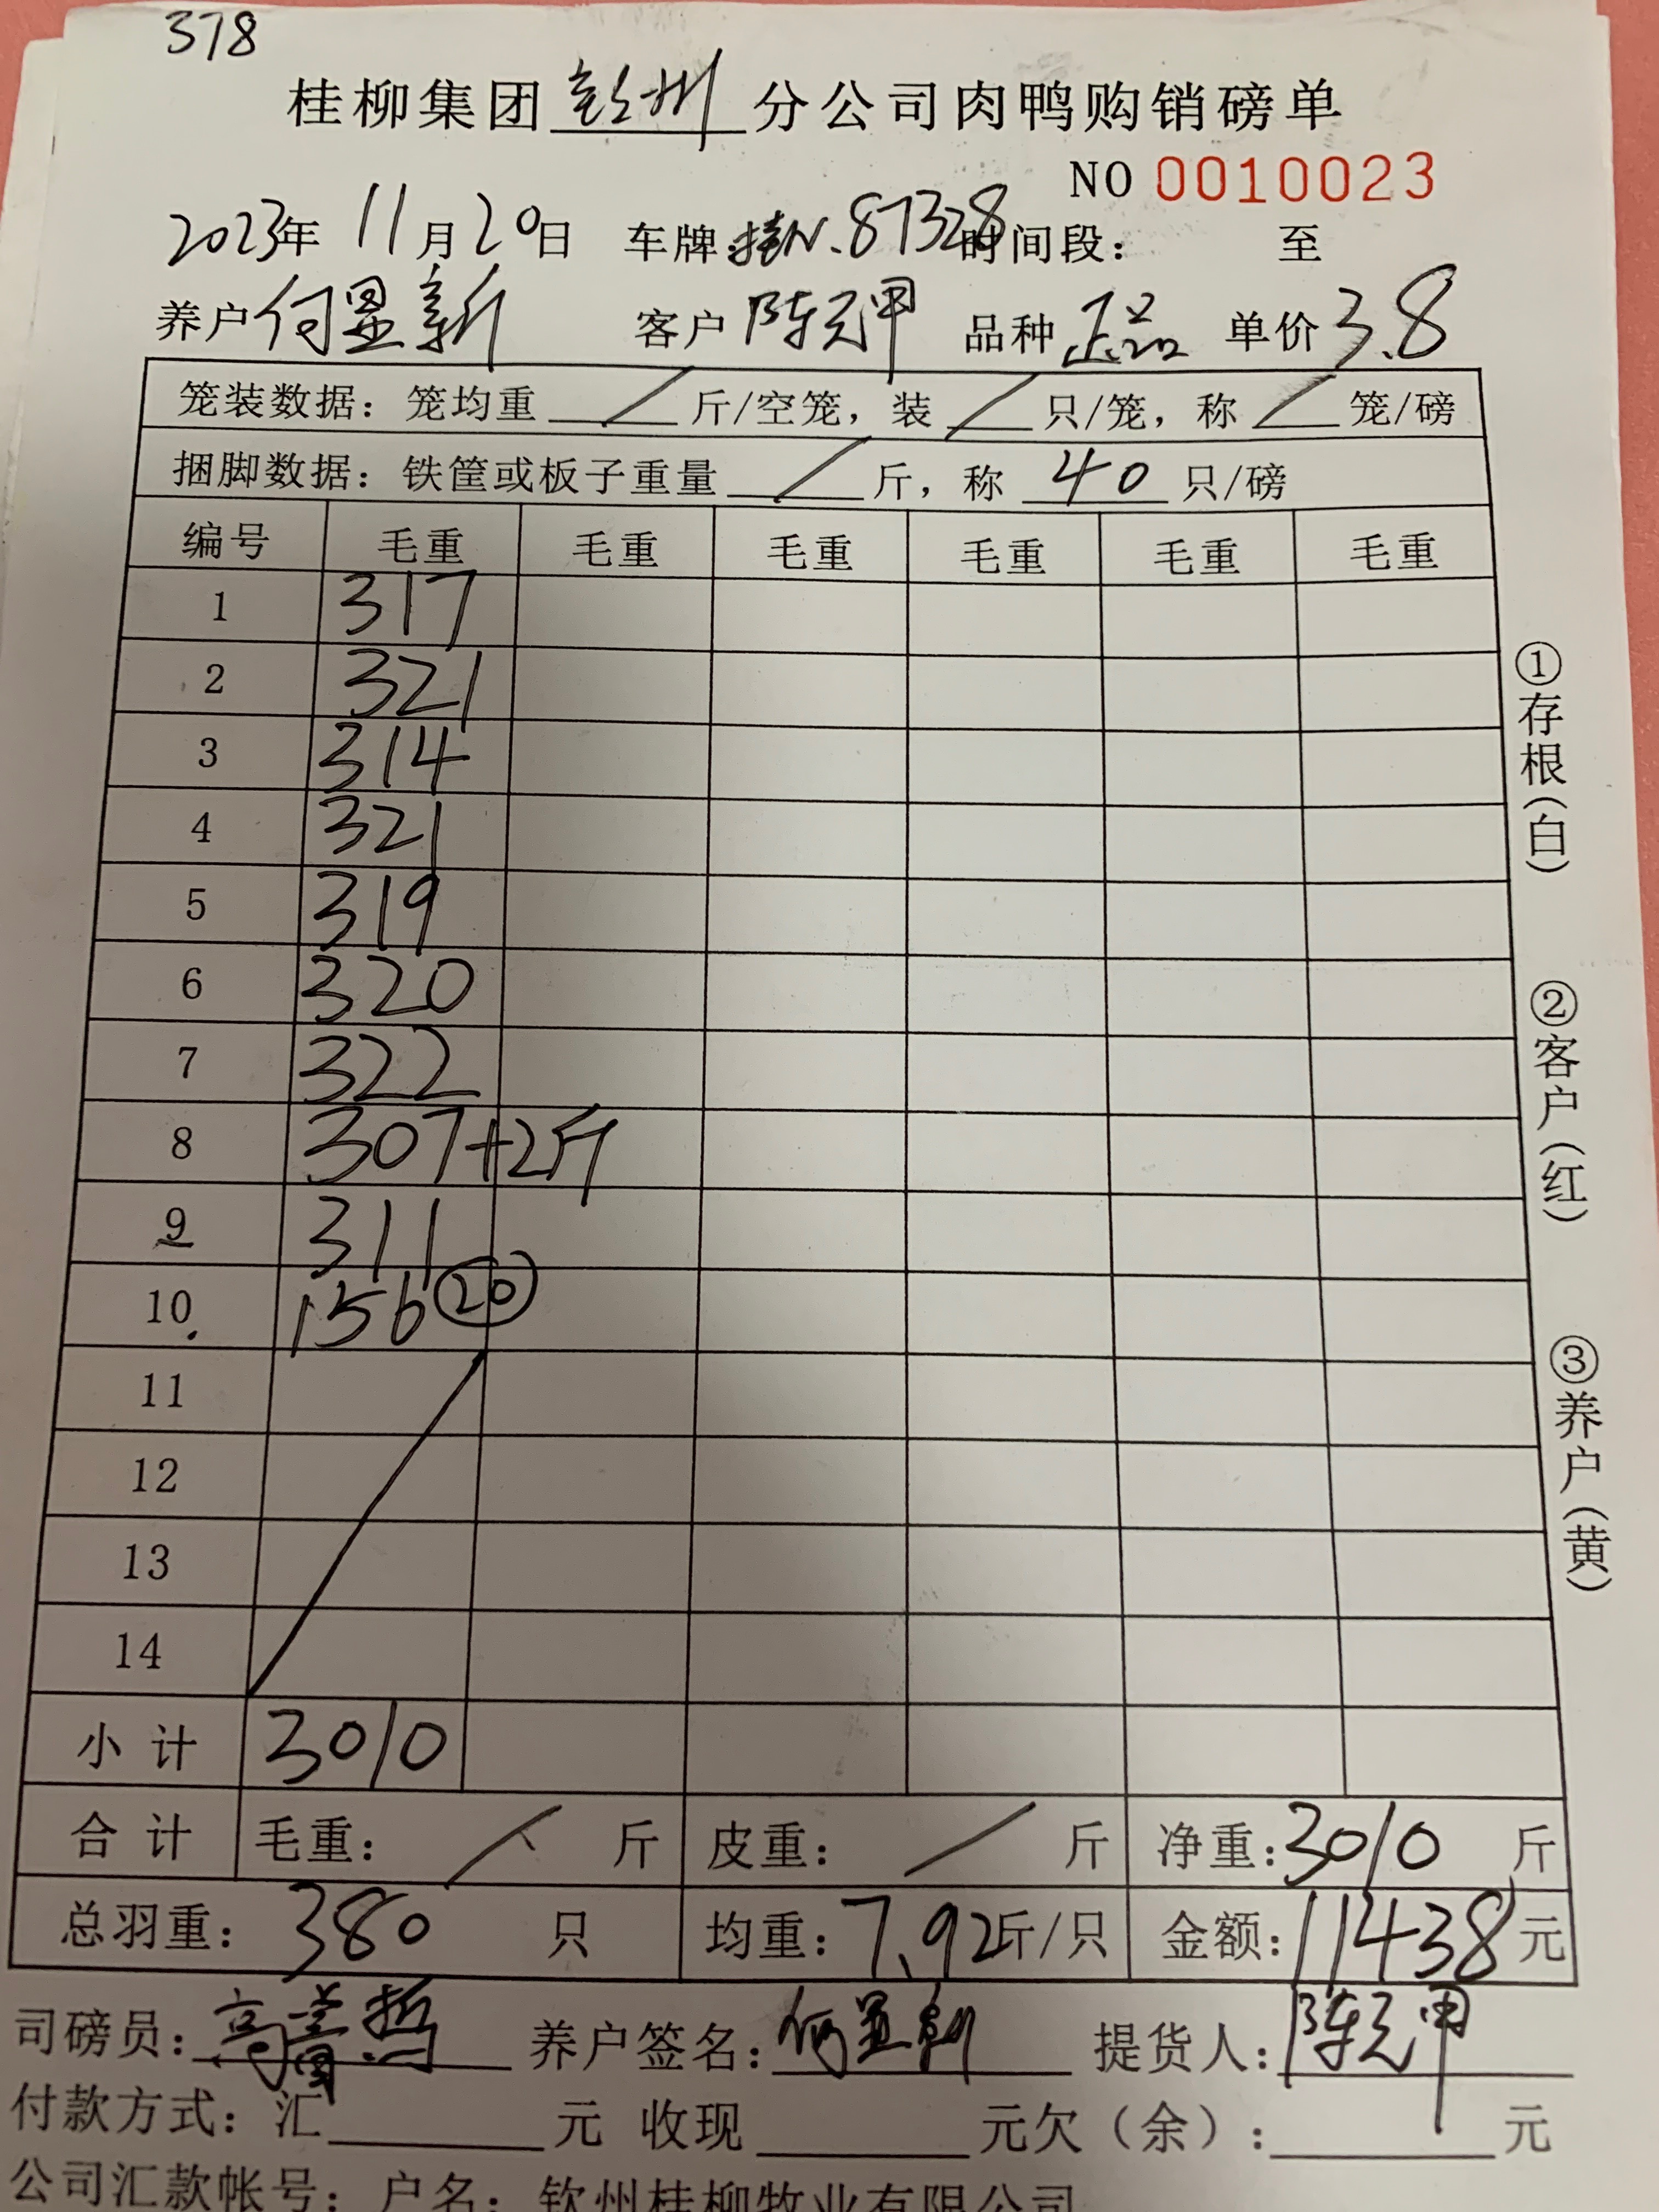 378
桂柳集团彭州分公司肉鸭购销磅单
NO 0010023
2023年 11月20日 车牌:桂N.87328 时间段: 至
养户 何显新 客户 陈元甲 品种 正品 单价 3.8
笼装数据: 笼均重 / 斤/空笼, 装 / 只/笼, 称 / 笼/磅
捆脚数据: 铁筐或板子重量 / 斤, 称 40 只/磅
编号 毛重 毛重 毛重 毛重 毛重 毛重
1 317
2 321
3 314
4 321
5 319
6 320
7 322
8 307+2斤
9 311
10 156 20
11
12
13
14
小计 3010
合计 毛重: / 斤 皮重: / 斤 净重:3010 斤
总羽重: 380 只 均重:7.92斤/只 金额:11438元
①存根(白)
②客户(红)
③养户(黄)
司磅员: 养户签名:何显新 提货人:陈元甲
付款方式: 汇 元 收现 元欠(余): 元
公司汇款帐号: 户名: 钦州桂柳牧业有限公司